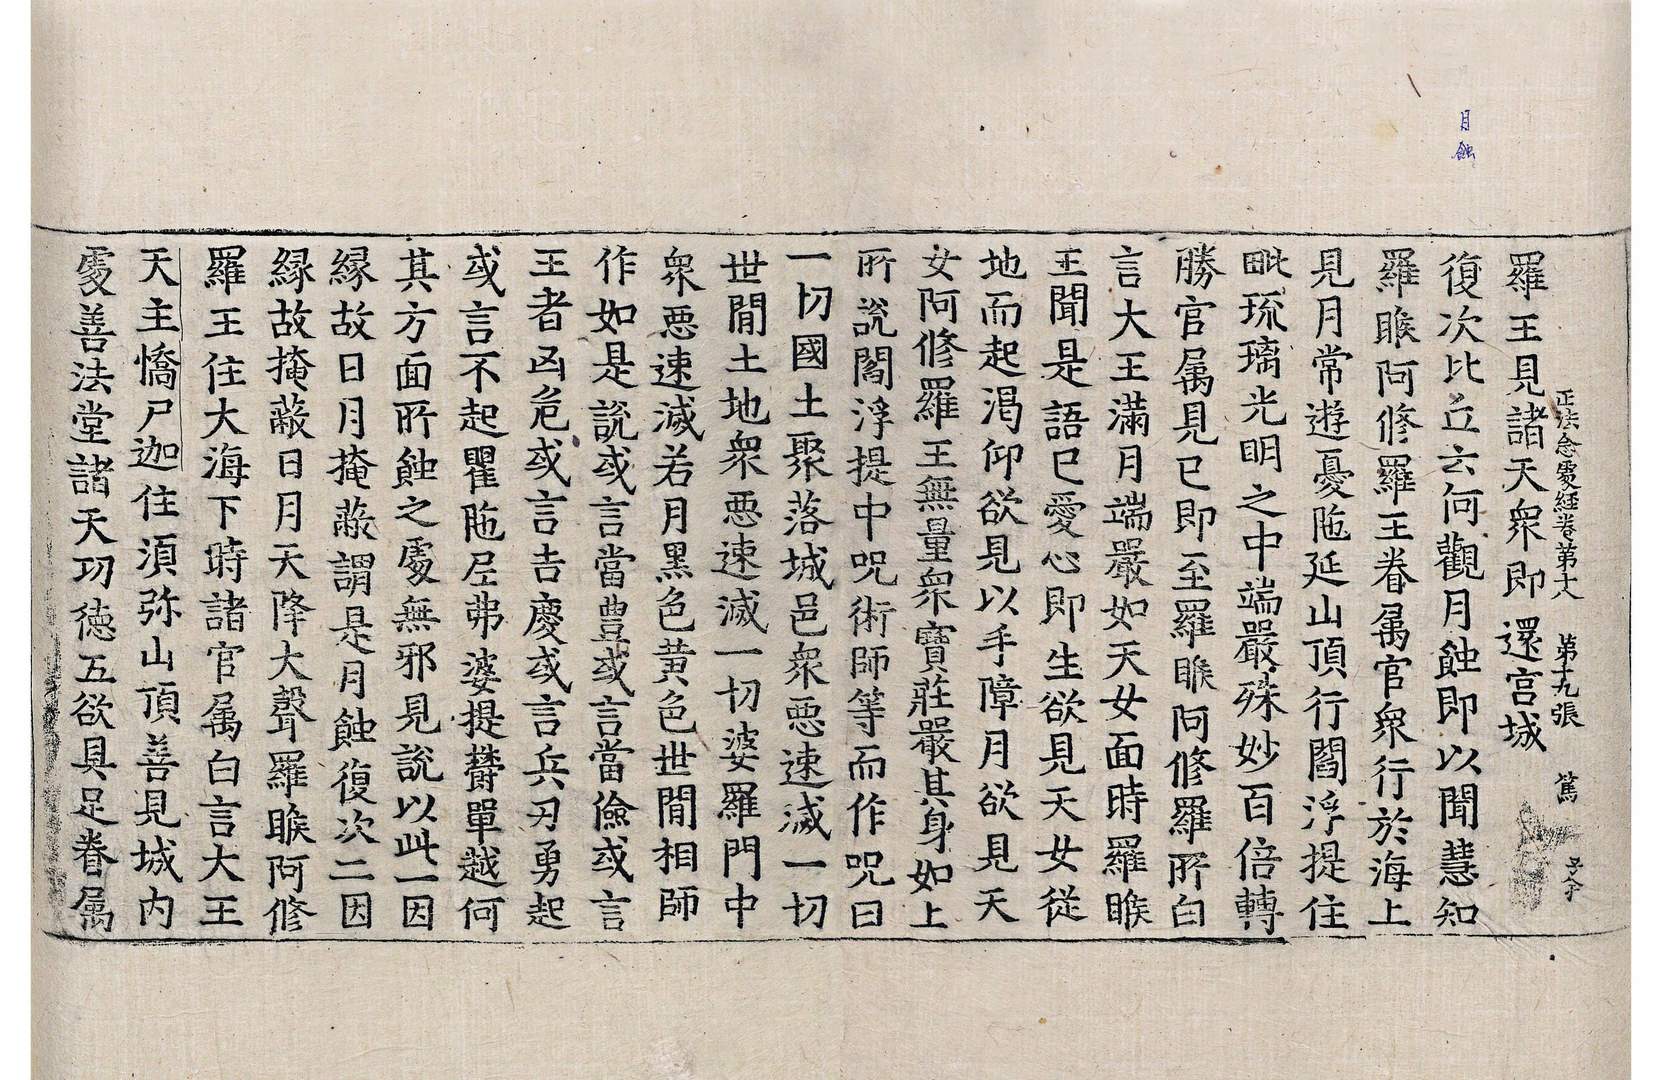 月
蝕
正法念處經卷第十八 第十九張 篤
羅王見諸天衆即還宮城
復次比丘云何觀月蝕即以聞慧知
羅睺阿修羅王眷属官衆行於海上
見月常遊憂陁延山頂行閻浮提住
毗琉璃光明之中端嚴殊妙百倍轉
勝官属見已即至羅睺阿修羅所白
言大王滿月端嚴如天女面時羅睺
王聞是語已愛心即生欲見天女從
地而起渇仰欲見以手障月欲見天
女阿修羅王無量衆寶莊嚴其身如上
所說閻浮提中呪術師等而作呪曰
一切國土聚落城邑衆悪速滅一切
世間土地衆悪速滅一切婆羅門中
衆悪速滅若月黒色黄色世間相師
作如是說或言當豊或言當儉或言
王者凶危或言吉慶或言兵刃勇起
或言不起瞿陁尼弗婆提欝單越何
其方面所蝕之處無邪見說以此一因
縁故日月掩蔽謂是月蝕復次二因
縁故掩蔽日月天降大聲羅睺阿修
羅王住大海下時諸官属白言大王
天主憍尸迦住湏弥山頂善見城内
處善法堂諸天功徳五欲具足眷属